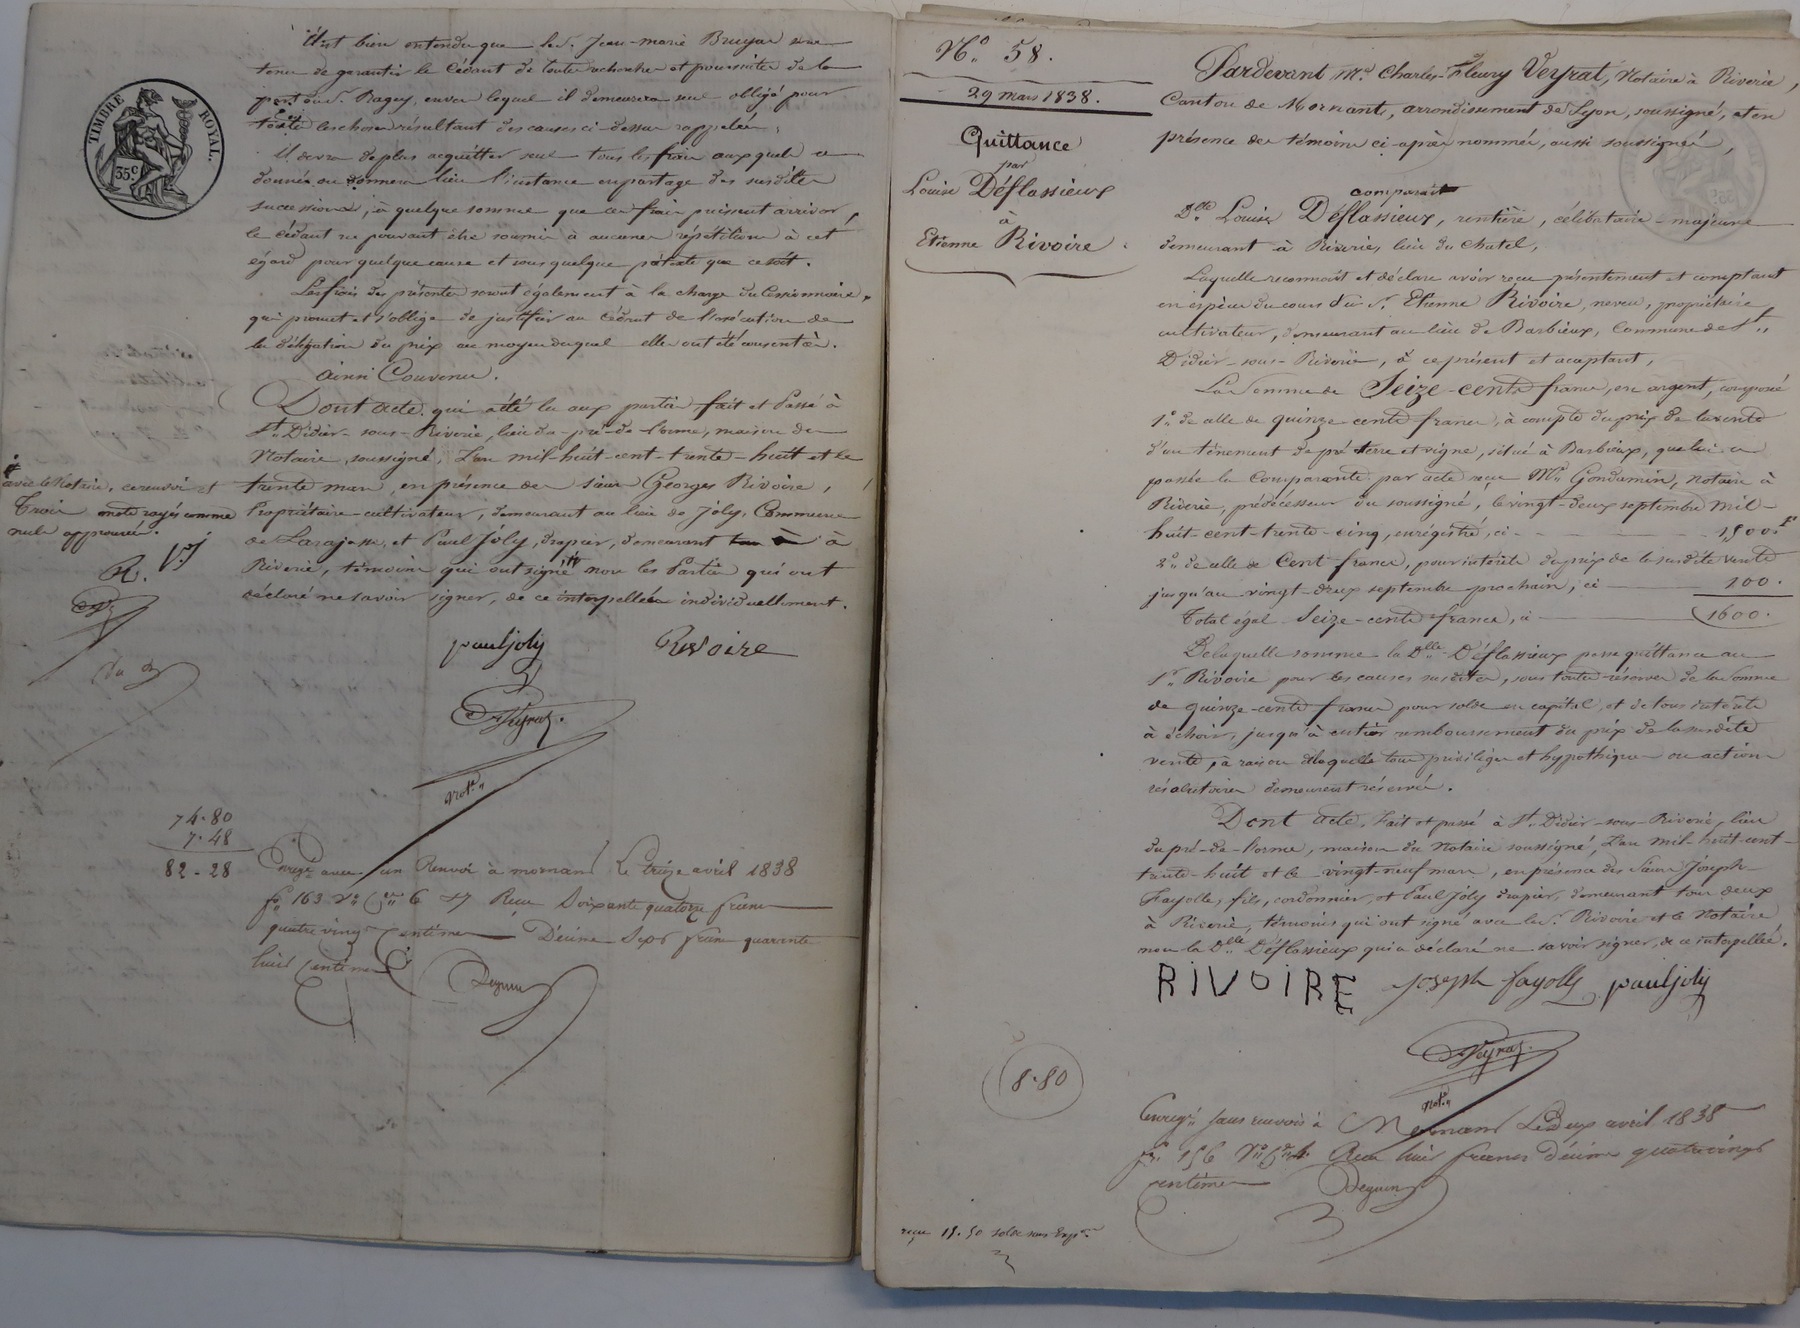 Il est bien entendu que le s. Jean-marie Bruyas sera
tenu de garantir le Cédant de toutes recherches et poursuites de la
part du s. Ragey, envers lequel il demeurera seul obligé pour
toutes les choses résultant des causes ci-dessus rappelées.
Il devra de plus acquitter seul tous les frais auxquels a
donné ou donnera lieu l'instance en partage des susdites
successions, à quelque somme que ces frais puissent arriver,
le cédant ne pouvant être soumis à aucune répétition à cet
égard pour quelque cause et sous quelque prétexte que ce soit.
Les frais des présentes seront également à la charge du Cessionnaire,
qui promet et s'oblige de justifier au cédant de l'exécution de
la délégation du prix au moyen duquel elle ont été consenties.
ainsi Convenu.
Dont acte, qui a été lu aux parties fait et Passé à
St. Didier-sous-Riverie, lieu du pré-de-l'orme, maison du
Notaire soussigné, L'an mil-huit-cent-trente-huit et le
trente mars, en présence des sieurs Georges Rivoire,
Propriétaire-cultivateur, demeurant au lieu de Joly, Commune
de Larajasse, et Paul Joly, drapier, demeurant à
Riverie, témoins qui ont signé non les Parties qui ont
déclaré ne savoir signer, de ce interpellées individuellement.
avec le Notaire, ce renvoi et
Trois mots rayés comme
nuls approuvés.
R. P.J
paul joly Rivoire
Veyrat.
Not.re
74.80
7.48
82.28
Enregé avec un Renvoi à mornant Le treize avril 1838
fo 163 Vo Cse 6 et 7 Reçu Soixante quatorze francs
quatre vingt centimes Décime Sept francs quarante
huit centimes
N.o 58.
29 mars 1838.
Quittance
par
Louise Déflassieux
à
Etienne Rivoire.
Pardevant M.e Charles-Fleury Veyrat, Notaire à Riverie,
Canton de Mornant, arrondissement de Lyon, soussigné, et en
présence des témoins ci-après nommés, aussi soussignés,
comparait
D.lle Louise Déflassieux, rentière, célibataire-majeure
demeurant à Riverie, lieu du Chatel,
Laquelle reconnait et déclare avoir reçu présentement et comptant
en espèces du cours du s.r Etienne Rivoire, neveu, propriétaire
cultivateur, demeurant au lieu de Barbieux, Commune de St.
Didier-sous-Riverie, à ce présent et acceptant,
La Somme de Seize-cents francs, en argent, composée
1.o de celle de quinze cents francs, à compte du prix de la vente
d'un ténement de pré terre et vigne, situé à Barbieux, que lui a
passée la Comparante par acte reçu M.e Gondamin, Notaire à
Riverie, prédécesseur du soussigné, le vingt-deux septembre mil-
huit-cent-trente-cinq, enrégistré, ci 1,500.f
2.o de celle de Cent francs, pour intérêts du prix de la susdite vente
jusqu'au vingt-deux septembre prochain, ci 100.
Total égal Seize-cents francs, ci 1600.
De laquelle somme la D.lle Déflassieux passe quittance au
s.r Rivoire pour les causes susdites, sous toutes réserves de la Somme
de quinze-cents francs pour solde en capital, et de tous intérêts
à échoir, jusqu'à entier remboursement du prix de la susdite
vente, à raison de laquelle tous privilèges et hypothèques ou actions
résolutoires demeurent réservés.
Dont acte, Fait et passé à St. Didier-sous-Riverie, lieu
du pré-de-l'orme, maison du Notaire soussigné, L'an mil-huit-cent-
trente-huit et le vingt-neuf mars, en présence des Sieurs Joseph
Fayolle, fils, cordonnier, et Paul Joly drapier, demeurant tous deux
à Riverie, témoins qui ont signé avec le s. Rivoire et le Notaire
non la D.lle Déflassieux qui a déclaré ne savoir signer, de ce interpellée.
RIVOIRE joseph fayolle paul joly
Veyrat.
Not.re
8.80
Enregé sans renvois à Mornant Le Deux avril 1838
fo 156 Vo Cse 4 Reçu huit francs Décime quatre vingt
centimes
TIMBRE ROYAL.
35.c